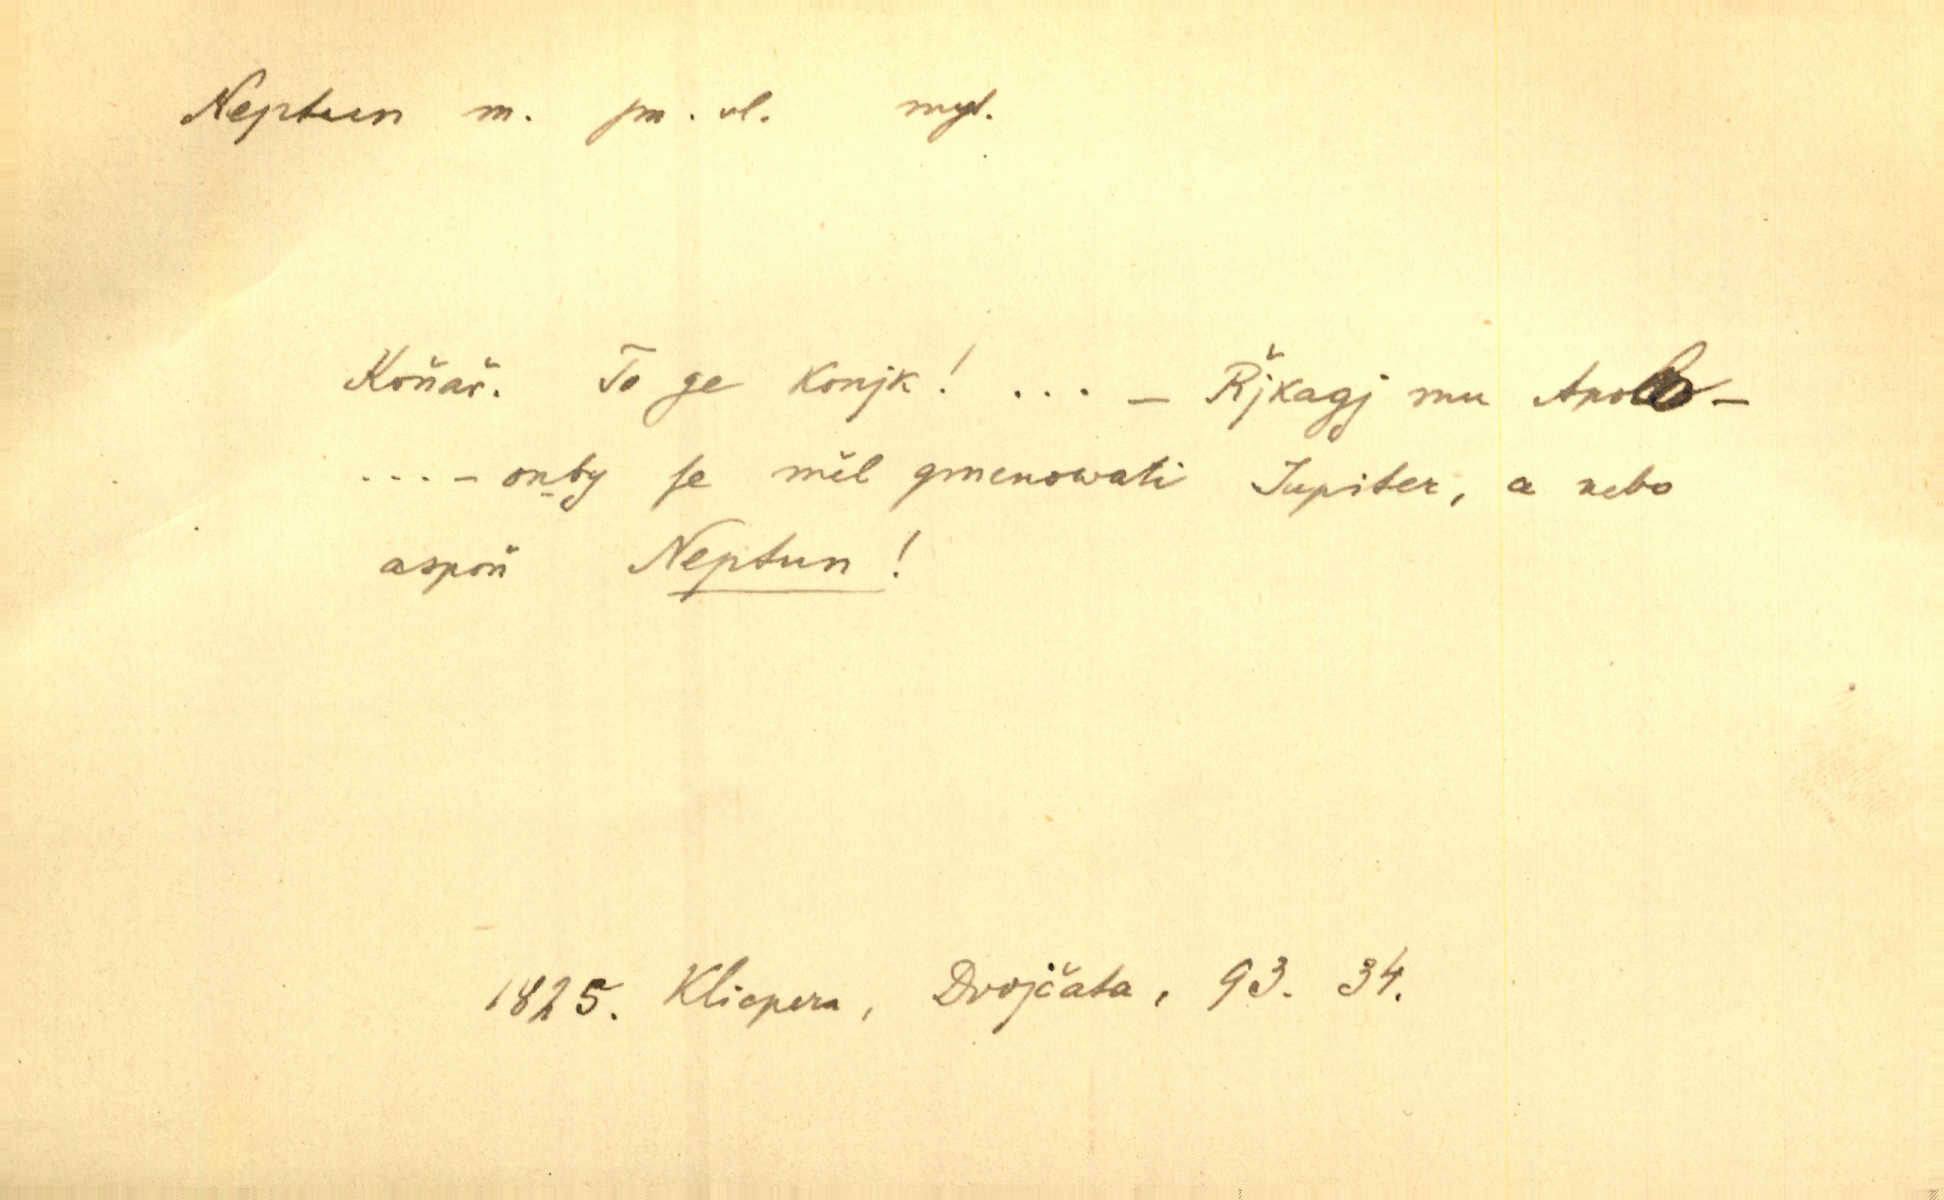 Neptun m. jm. vl. myt.
Koňař. To ge konjk! ... – Řjkagj mu Apollo –
... – onby se měl gmenowati Jupiter, a nebo
aspoň Neptun!
1825. Klicpera, Dvojčata, 93. 34.